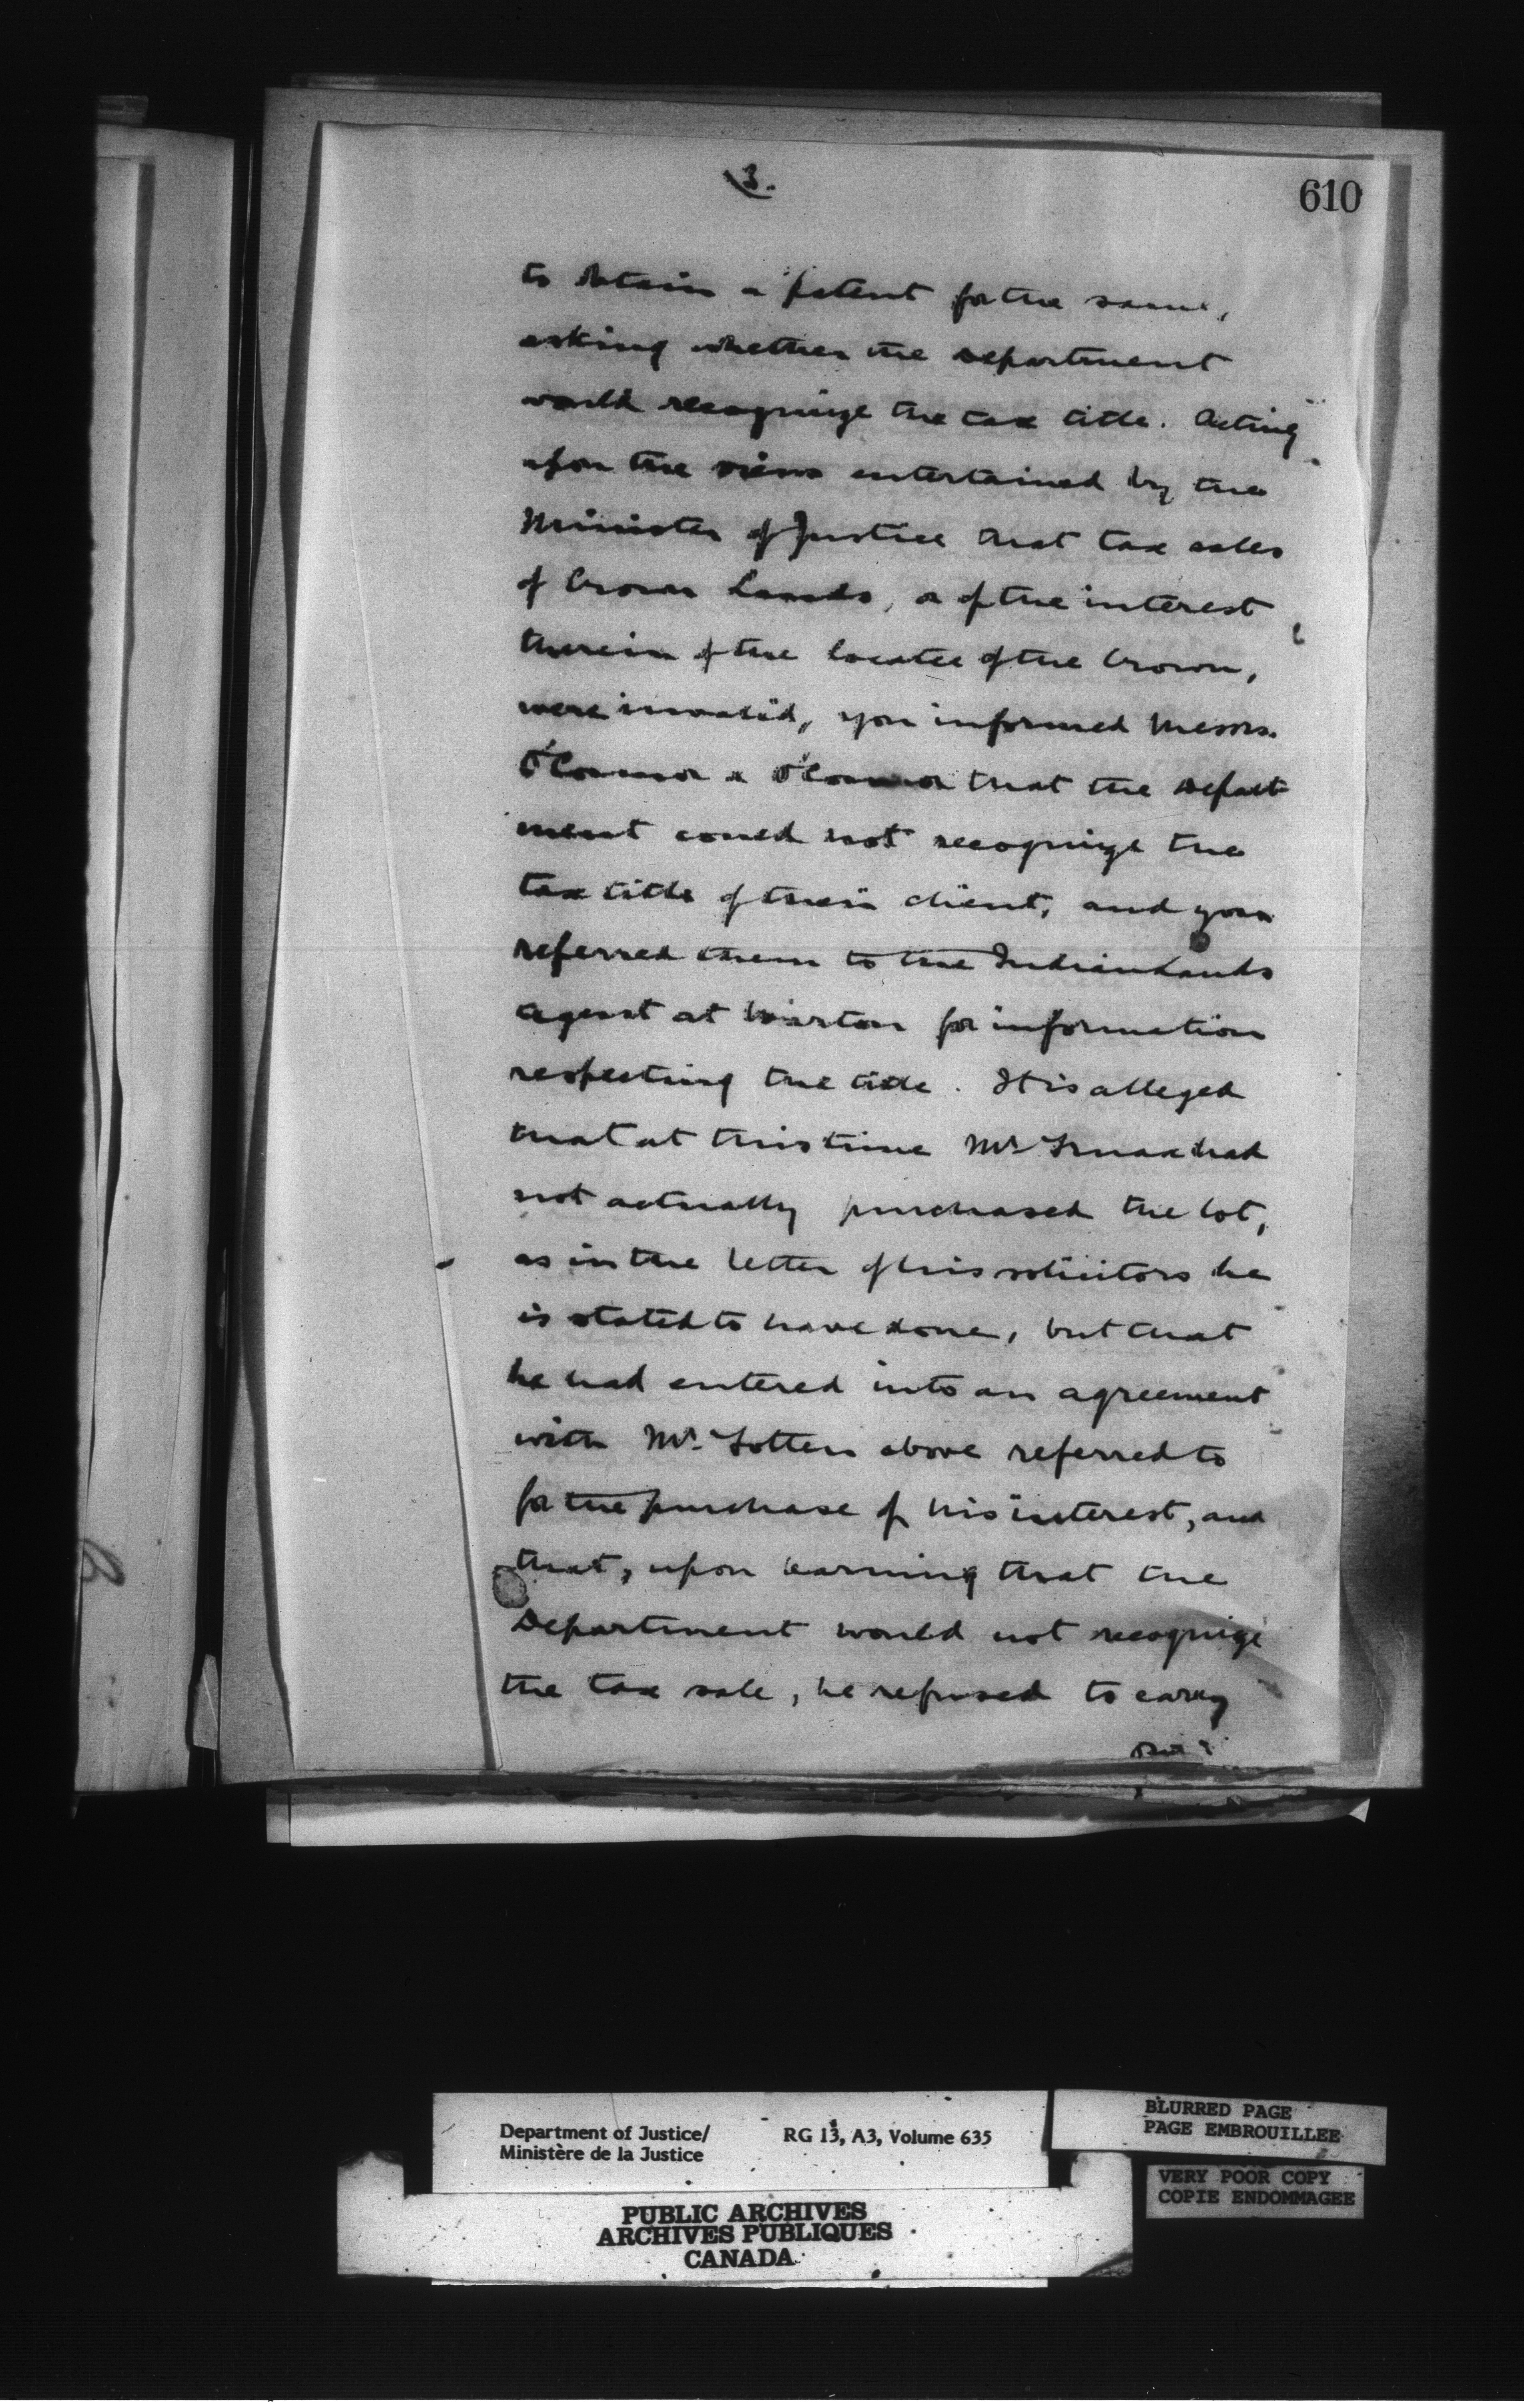 3.
610
to obtain a patent for the same,
asking whether the Department
would recognize the tax title. Acting
upon the view entertained by the
Minister of Justice that tax sales
of Crown Lands, or of the interest
therein of the locatee of the Crown,
were invalid, you informed Messrs.
O'Connor & O'Connor that the Depart
ment could not recognize the
tax title of their client, and you
referred them to the Indian Lands
Agent at Wiarton for information
respecting the title. It is alleged
that at this time Mr. Truax had
not actually purchased the lot,
as in the letter of his solicitors he
is stated to have done, but that
he had entered into an agreement
with Mr. Totten above referred to
for the purchase of his interest, and
that, upon learning that the
Department would not recognize
the tax sale, he refused to carry
out
Department of Justice/ RG 13, A3, Volume 635
Ministère de la Justice
PUBLIC ARCHIVES
ARCHIVES PUBLIQUES
CANADA
BLURRED PAGE
PAGE EMBROUILLEE
VERY POOR COPY
COPIE ENDOMMAGEE